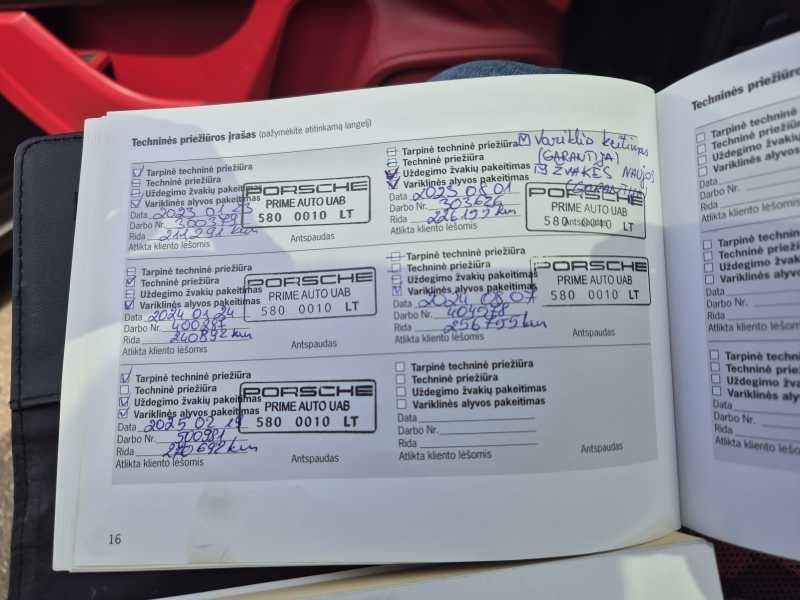 Techninės priežiūros įrašas (pažymėkite atitinkamą langelį)
Tarpinė techninė priežiūra
Techninė priežiūra
Uždegimo žvakių pakeitimas
Variklinės alyvos pakeitimas
Data 2023 01 23
Darbo Nr. 300379
Rida 211291 km
Atlikta kliento lėšomis
Antspaudas
PORSCHE
PRIME AUTO UAB
580 0010 LT
Tarpinė techninė priežiūra
Techninė priežiūra
Uždegimo žvakių pakeitimas
Variklinės alyvos pakeitimas
Data 2023 08 01
Darbo Nr. 303626
Rida 226199 km
Atlikta kliento lėšomis
Antspaudas
Variklio keitimas
(GARANTIJA)
ŽVAKĖS NAUJOS
PORSCHE
PRIME AUTO UAB
580 0010 LT
Tarpinė techninė priežiūra
Techninė priežiūra
Uždegimo žvakių pakeitimas
Variklinės alyvos pakeitimas
Data 2024 01 24
Darbo Nr. 400287
Rida 240892 km
Atlikta kliento lėšomis
Antspaudas
PORSCHE
PRIME AUTO UAB
580 0010 LT
Tarpinė techninė priežiūra
Techninė priežiūra
Uždegimo žvakių pakeitimas
Variklinės alyvos pakeitimas
Data 2024 08 07
Darbo Nr. 404078
Rida 256755 km
Atlikta kliento lėšomis
Antspaudas
PORSCHE
PRIME AUTO UAB
580 0010 LT
Tarpinė techninė priežiūra
Techninė priežiūra
Uždegimo žvakių pakeitimas
Variklinės alyvos pakeitimas
Data 2025 03 19
Darbo Nr. 500981
Rida
Atlikta kliento lėšomis
Antspaudas
PORSCHE
PRIME AUTO UAB
580 0010 LT
Tarpinė techninė priežiūra
Techninė priežiūra
Uždegimo žvakių pakeitimas
Variklinės alyvos pakeitimas
Data
Darbo Nr.
Rida
Atlikta kliento lėšomis
Antspaudas
16
Techninės priežiūro
Tarpinė techninė
Techninė priežiū
Uždegimo žvakių
Variklinės alyvos
Data
Darbo Nr.
Rida
Atlikta kliento lėšomis
Tarpinė techninė
Techninė priežiū
Uždegimo žvakių
Variklinės alyvos
Data
Darbo Nr.
Rida
Atlikta kliento lėšomis
Tarpinė techninė
Techninė priežiū
Uždegimo žvakių
Variklinės alyvos
Data
Darbo Nr.
Rida
Atlikta kliento lėšomis